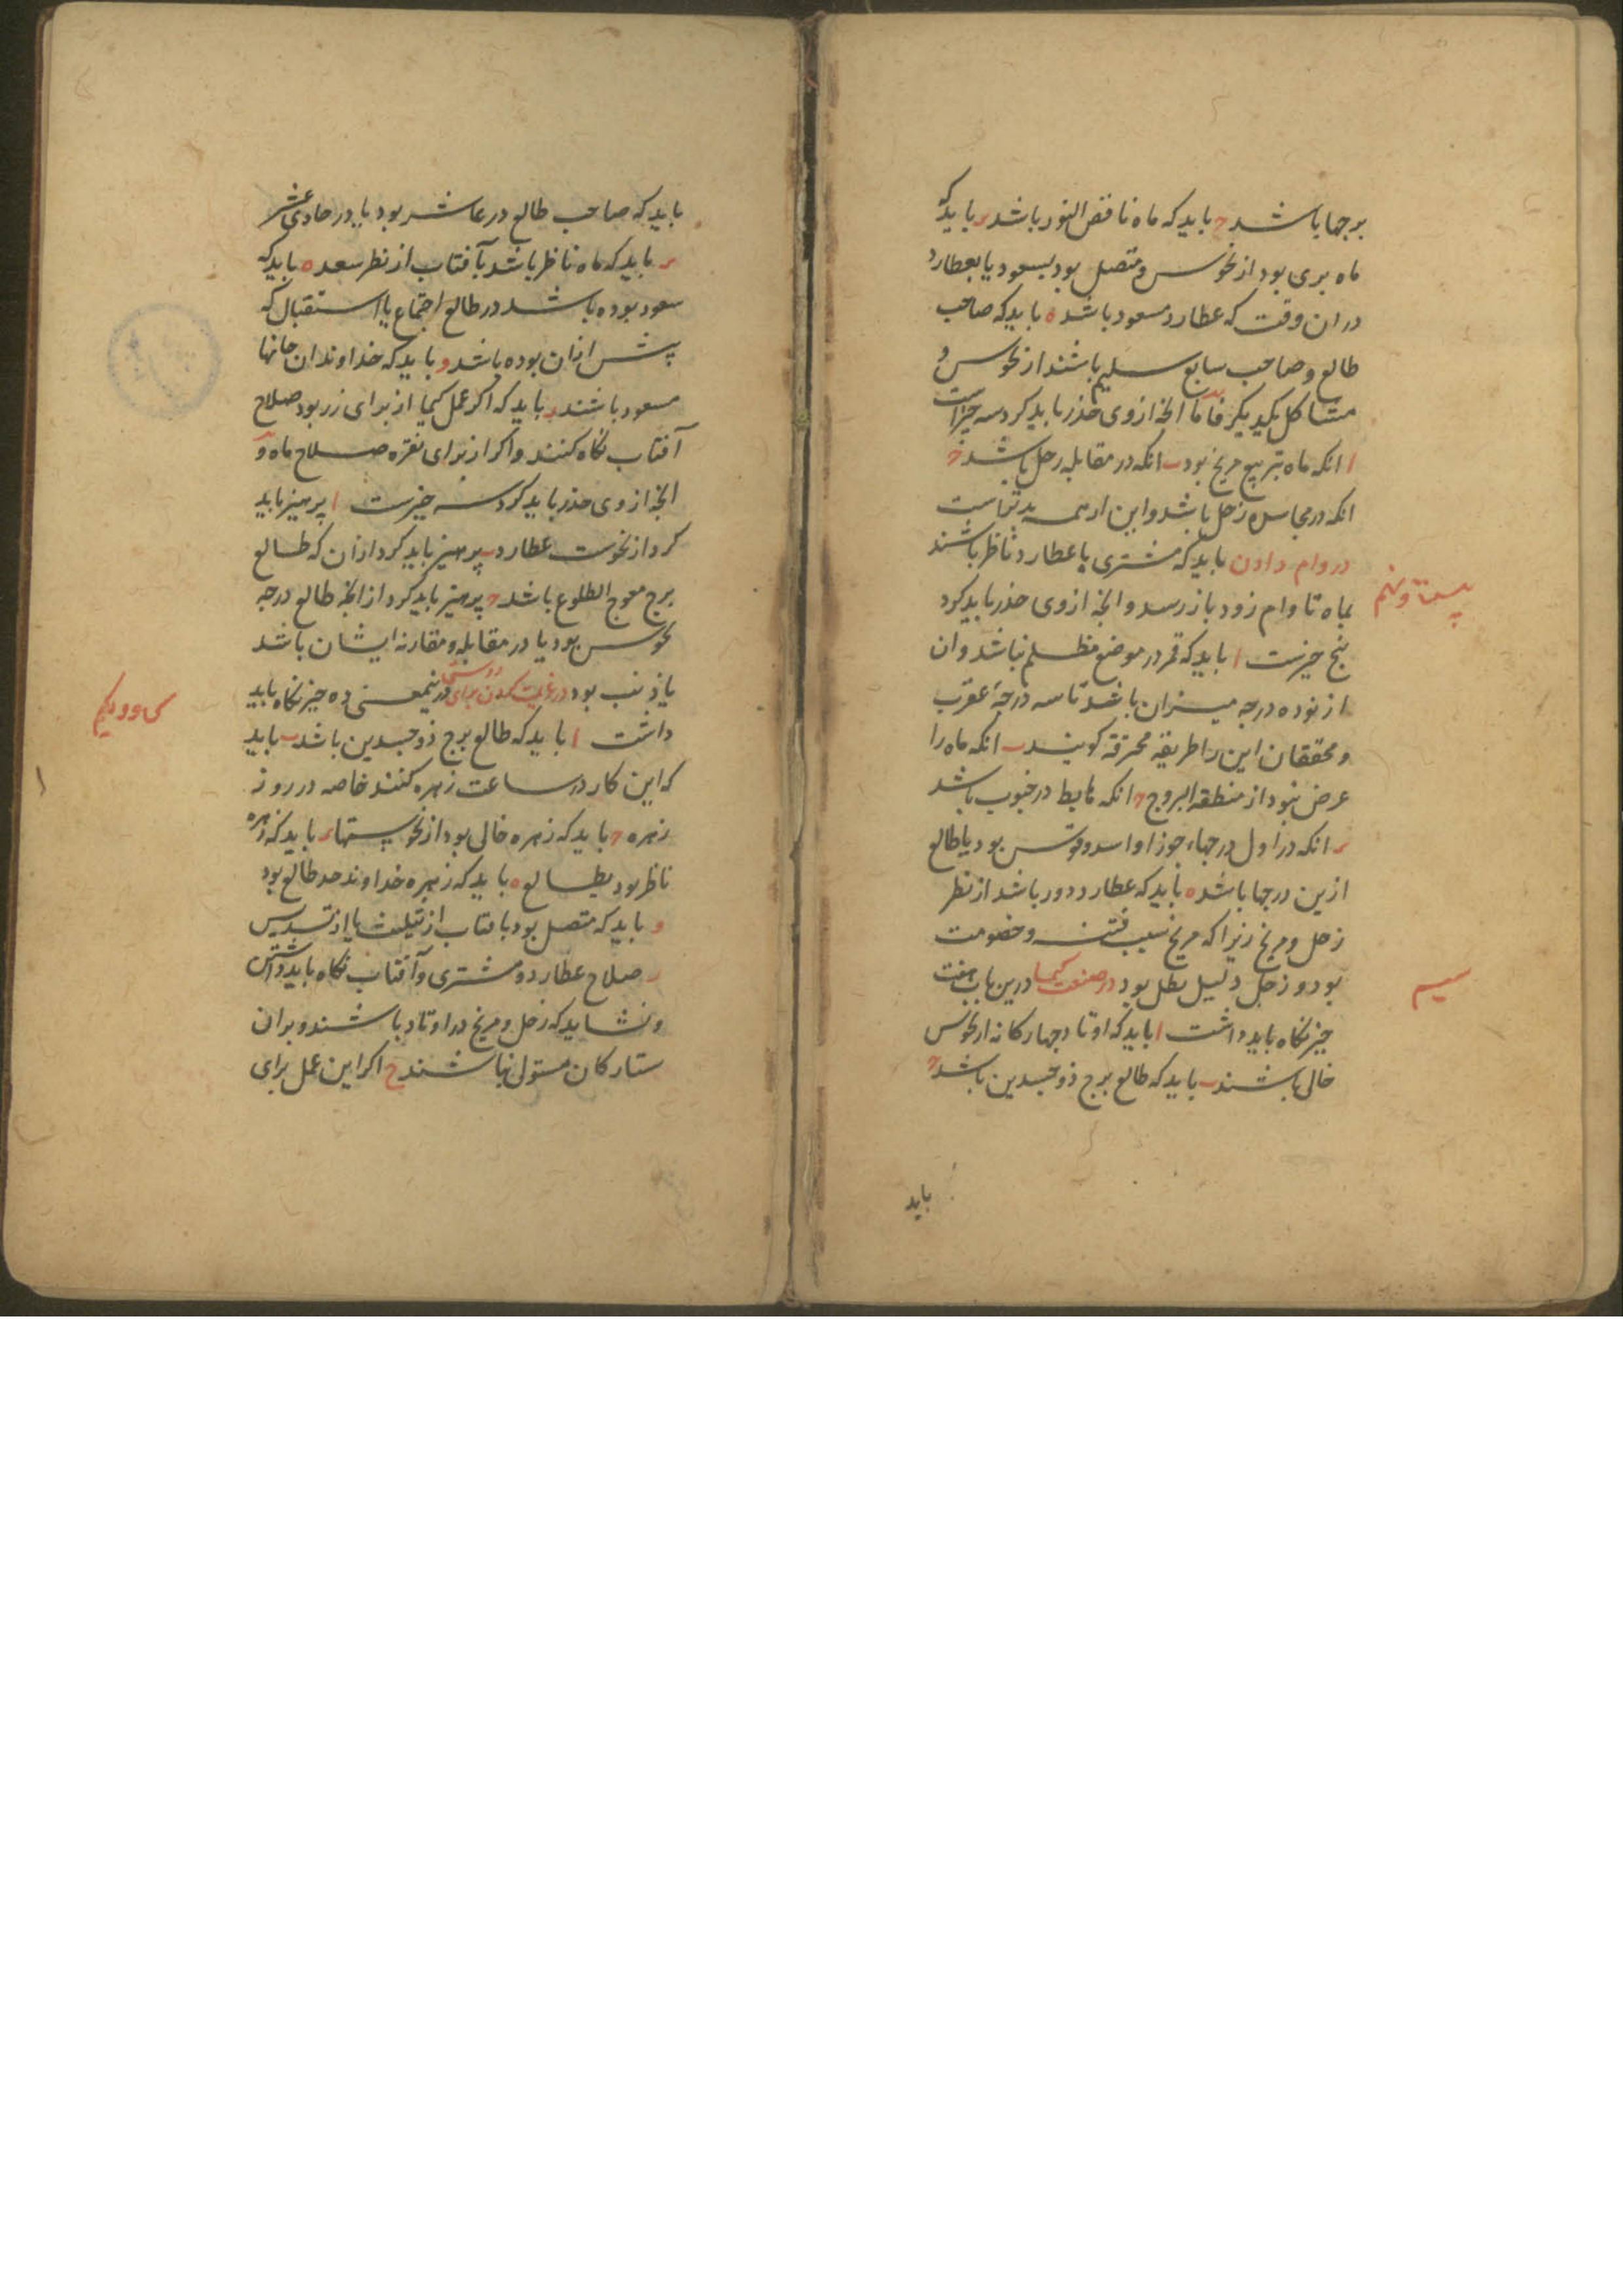 برجها باشد ح باید که ماه ناقص النور باشد د باید که
ماه بری بود از نحوس و متصل بود بسعود یا بعطارد
در ان وقت که عطارد مسعود باشد ه باید که صاحب
طالع و صاحب سابع سلیم باشند از نحوس و
مشاکل یکدیگر فاما انچ از وی حذر باید کرد سه چیزاست
ا انکه ماه بتربیع مریخ بود ب انکه در مقابله زحل باشد ح
انکه در مجاسده زحل باشد و این از همه بدتر است
در وام دادن باید که مشتری با عطارد ناظر باشند
بیست و نهم
بماه تا وام زود باز رسد و انچ از وی حذر باید کرد
پنج چیزست ا باید که قمر در موضع مظلم نباشد و ان
از نوده درجه میزان باشد تا سه درجهٔ عقرب
و محققان این را طریقه محترقه کویند ب انکه ماه را
عرض نبود از منطقه البروج ح انکه هابط در جنوب باشد
د انکه در اول درجهاء جوزا و اسد و قوس بود یا طالع
ازین درجها باشد ه باید که عطارد دور باشد از نظر
زحل و مریخ زیرا که مریخ سبب فتنه و خصومت
بود و زحل دلیل بطل بود در صنعت کیمیا درین باب هفت
سیم
چیز نکاه باید داشت ا باید که اوتاد چهارکانه از نحوس
خالی باشند ب باید که طالع برج ذوجسدین باشد ح
باید
باید که صاحب طالع در عاشر بود یا در حادی عشر
د باید که ماه ناظر باشد بآفتاب از نظر سعد ه باید که
سعود بوده باشد در طالع اجتماع یا استقبال که
پیش ازان بوده باشد و باید که خداوندان خانها
مسعود باشند ز باید که اکر عمل کیمیا از برای زر بود صلاح
آفتاب نکاه کنند و اکر از برای نقره صلاح ماه و
انچ از وی حذر باید کرد سه چیزست ا پرهیز باید
کرد از نحوست عطارد ب پرهیز باید کرد ازان که طالع
برج معوج الطلوع باشد ح پرهیز باید کرد از انچ طالع درجه
نحوس بود یا در مقابله و مقارنه ایشان باشد
یا ذنب بود در رغبت کردن برای دوستی درینمعنی ده چیز نکاه باید
سی و یکم
داشت ا باید که طالع برج ذوجسدین باشد ب باید
که این کار در ساعت زهره کنند خاصه در روز
زهره ح باید که زهره خالی بود از نحوستها د باید که زهره
ناظر بود بطالع ه باید که زهره خداوند حد طالع بود
و باید که متصل بود بافتاب از تثلیث یا از تسدیس
ز صلاح عطارد و مشتری و آفتاب نکاه باید داشتن
و نشاید که زحل و مریخ در اوتاد باشند و بران
ستارکان مستولی نباشند ح اکر این عمل برای